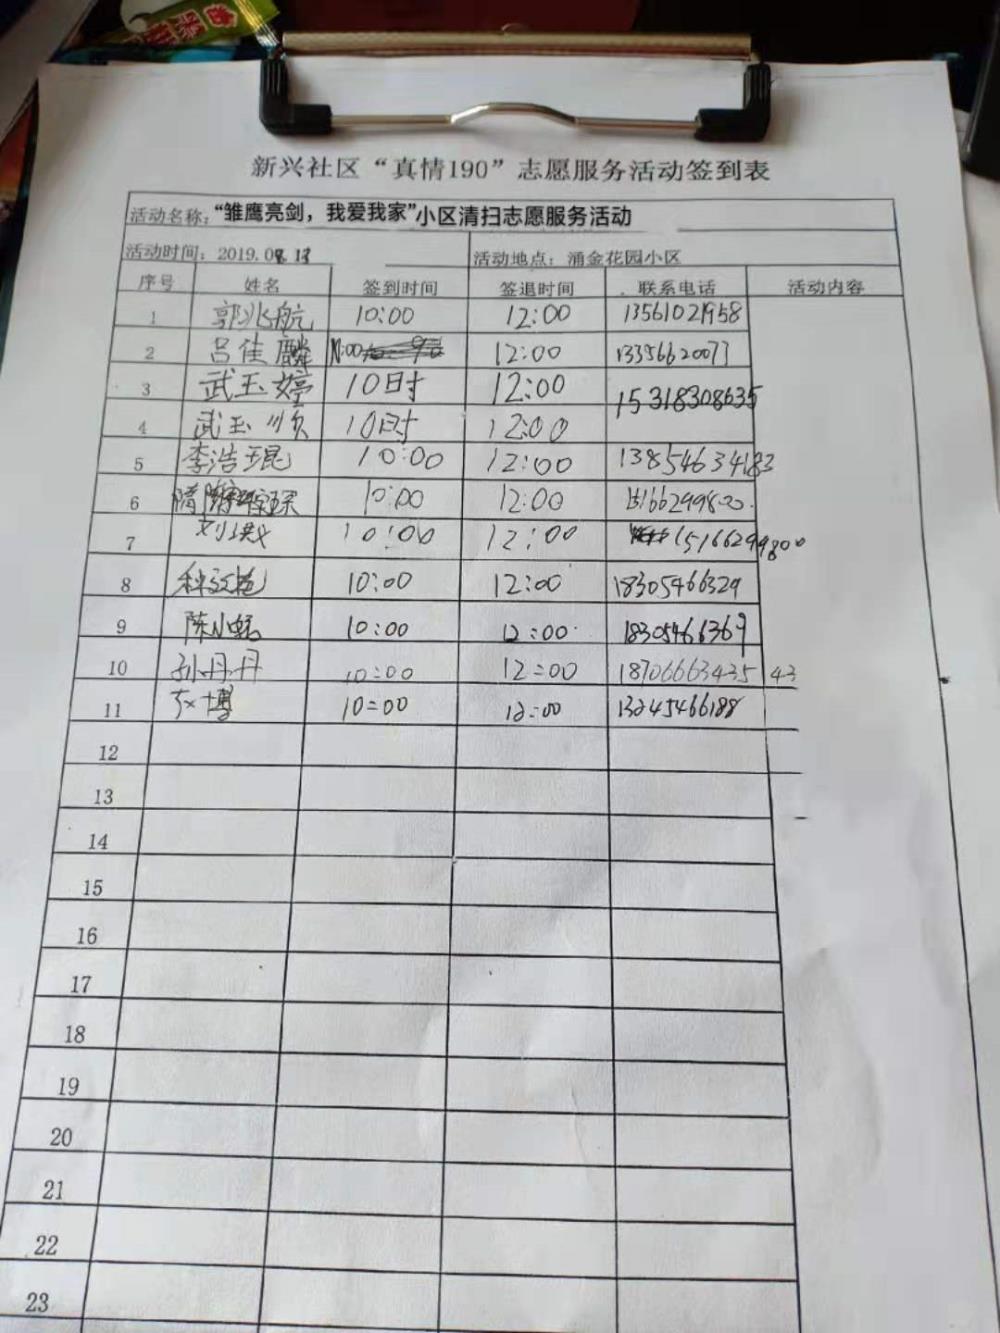 新兴社区“真情190”志愿服务活动签到表
活动名称：“雏鹰亮剑，我爱我家”小区清扫志愿服务活动
活动时间：2019.08.13 活动地点：涌金花园小区
序号 姓名 签到时间 签退时间 联系电话 活动内容
1 郭兆航 10:00 12:00 13561021958
2 吕佳麟 12:00 13356620077
3 武玉婷 10时 12:00 15318308635
4 武玉顺 10时 12:00
5 李浩琨 10:00 12:00 13854634183
6 10:00 12:00 15166299800
7 10:00 12:00 15166299800
8 10:00 12:00 18305466329
9 陈小娟 10:00 12:00 18305466369
10 孙丹丹 10:00 12:00 18706663435 43
11 10:00 12:00 13245466188
12
13
14
15
16
17
18
19
20
21
22
23